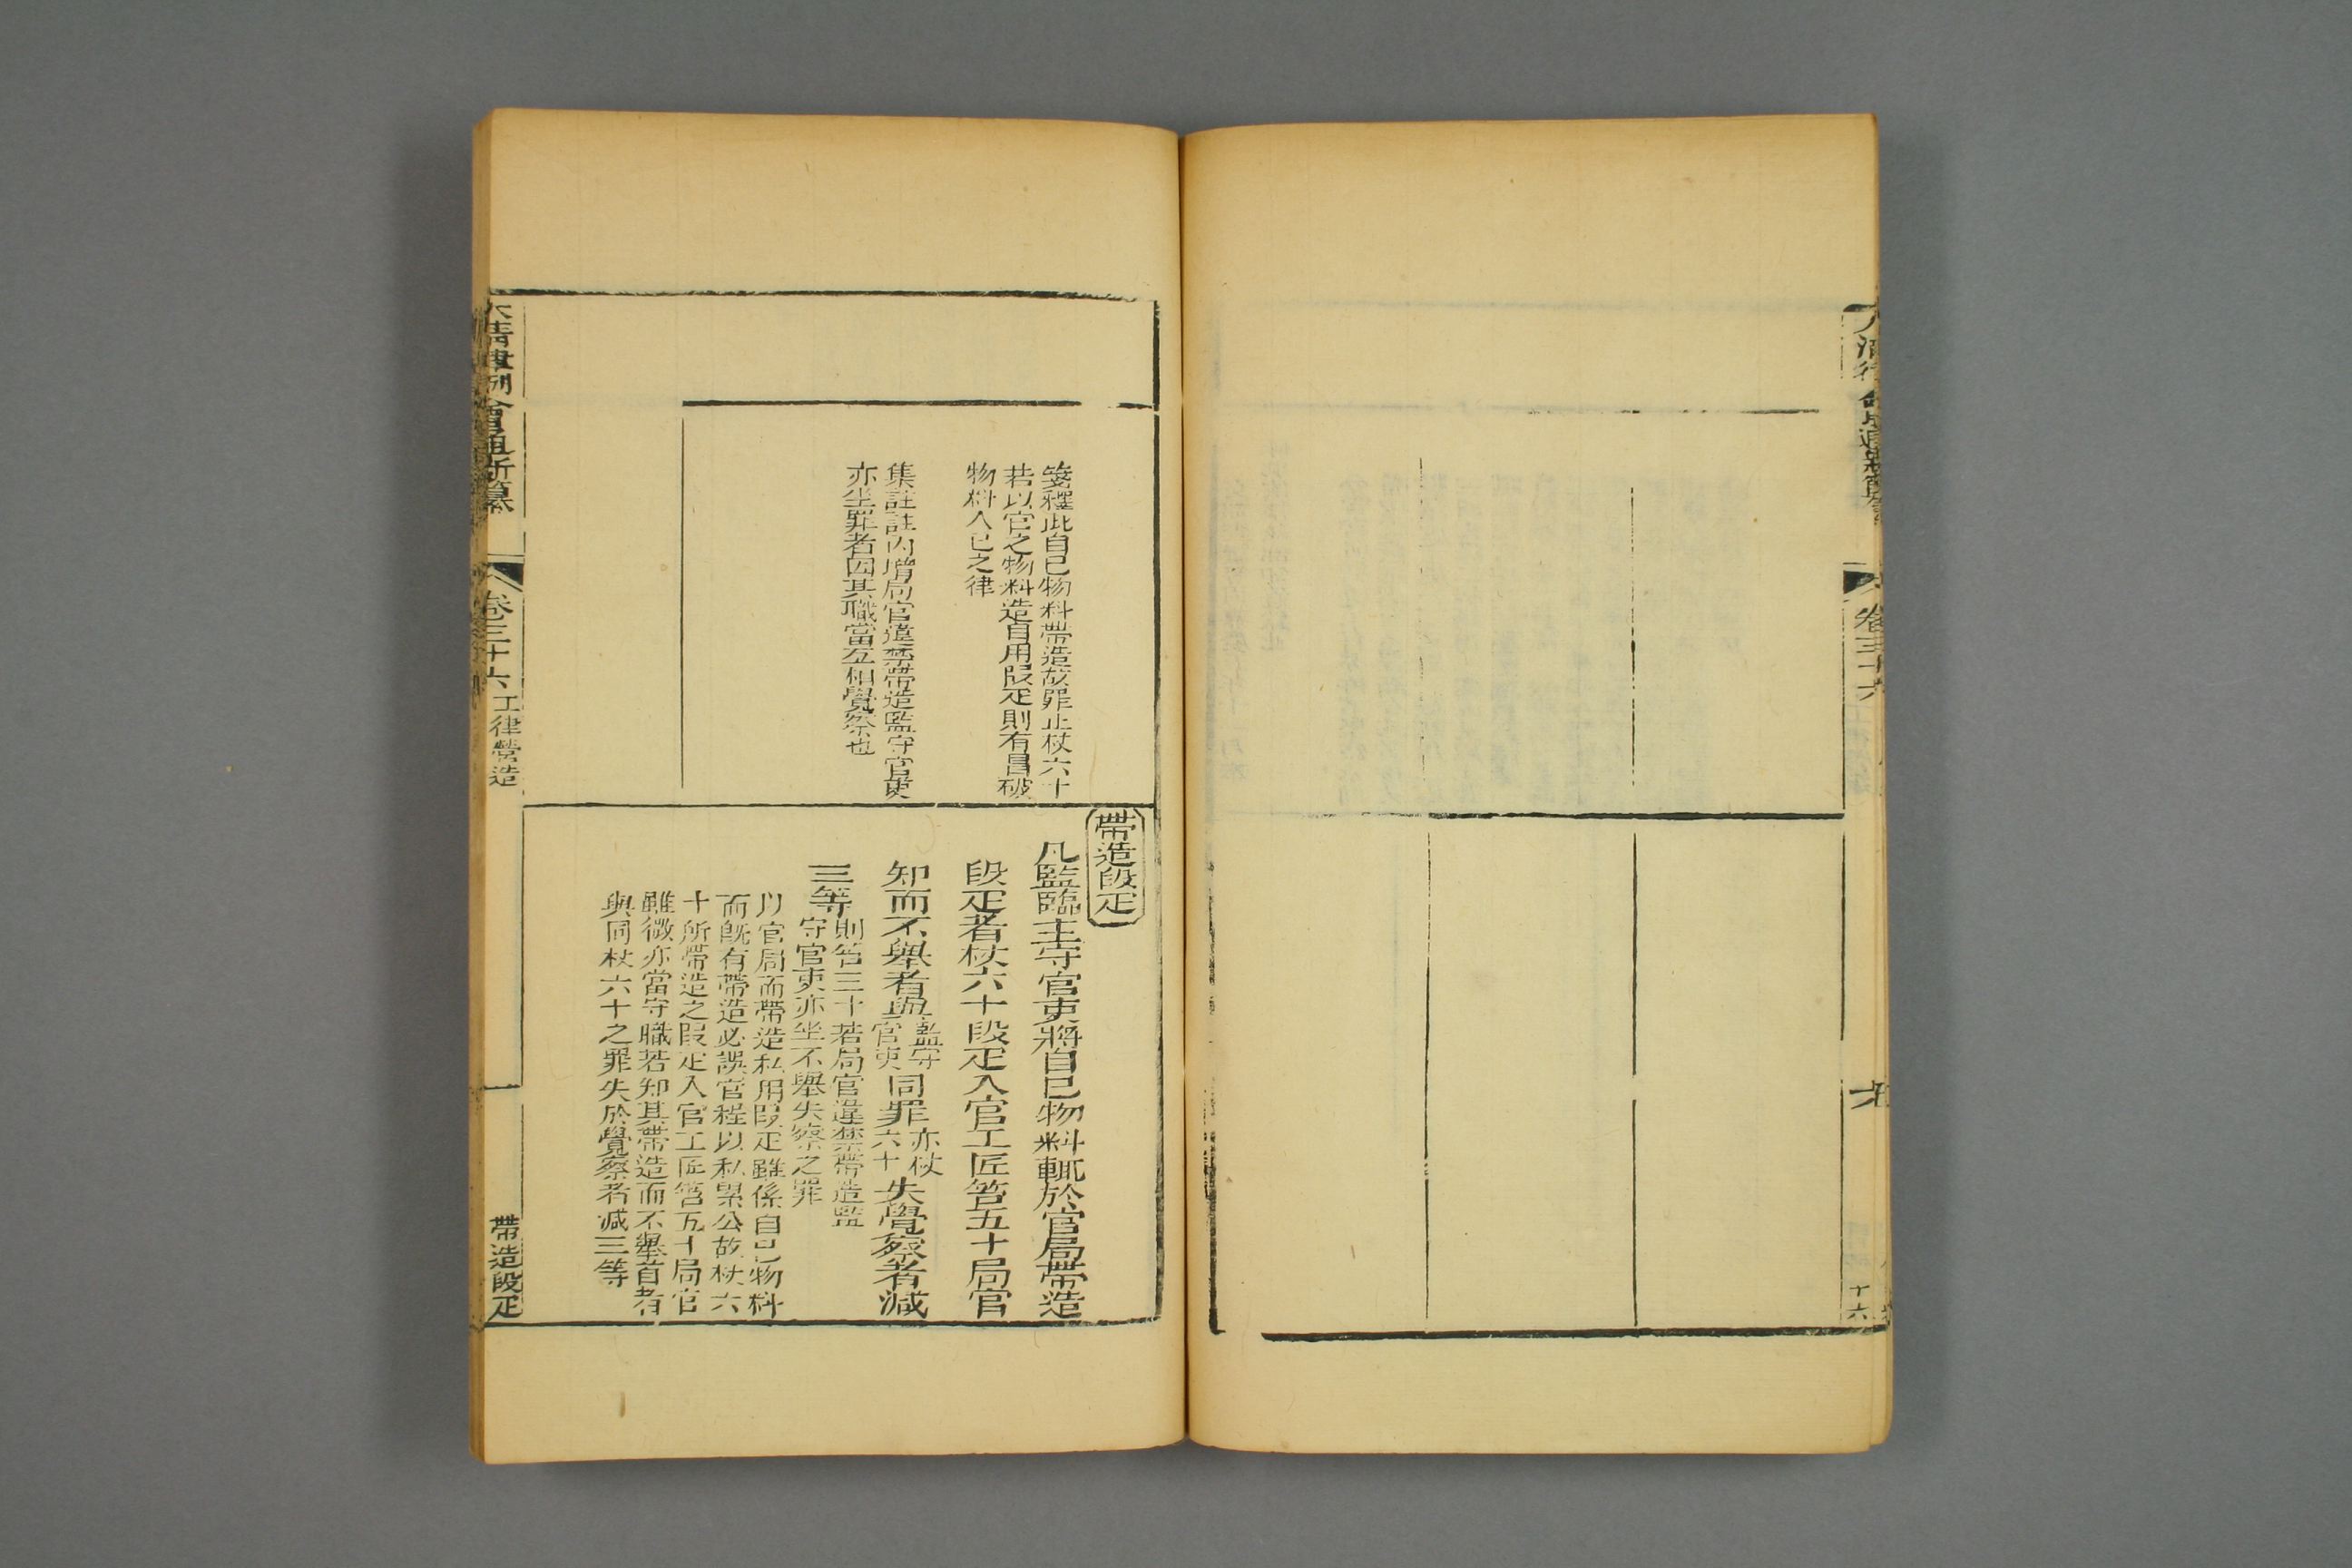 卷三十六
十六
箋釋此自己物料帶造故罪止杖六十
若以官之物料造自用段疋則有冒破
物料入己之律
集註註內增局官違禁帶造監守官吏
亦坐罪者因其職當互相覺察也
帶造段疋
凡監臨主守官吏將自己物料輒於官局帶造
段疋者杖六十段疋入官工匠笞五十局官
知而不舉者與監守官吏同罪亦杖六十失覺察者減
三等則笞三十若局官違禁帶造監
守官吏亦坐不舉失察之罪
以官局而帶造私用段疋雖係自己物料
而旣有帶造必誤官程以私累公故杖六
十所帶造之段疋入官工匠笞五十局官
雖微亦當守職若知其帶造而不舉首者
與同杖六十之罪失於覺察者減三等
大清律例會通新纂
卷三十六
工律營造
帶造段疋